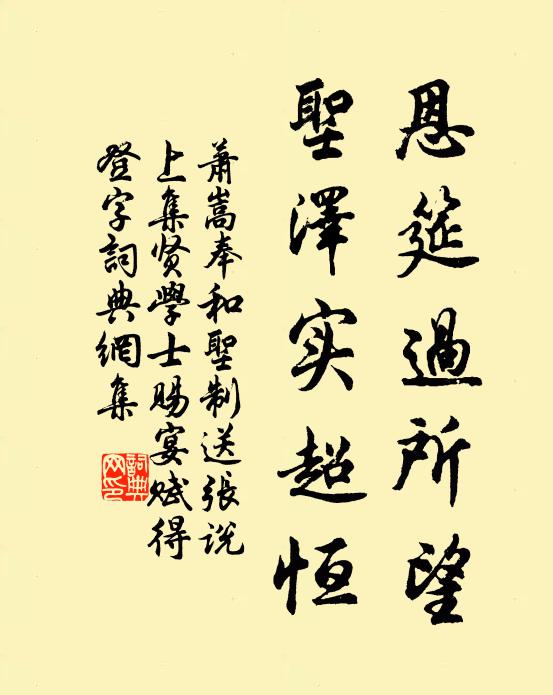 恩筵過所望
聖澤实超恒
萧嵩奉和聖制送張说
上集贤學士赐宴赋得
登字詞典網集
詞典网印